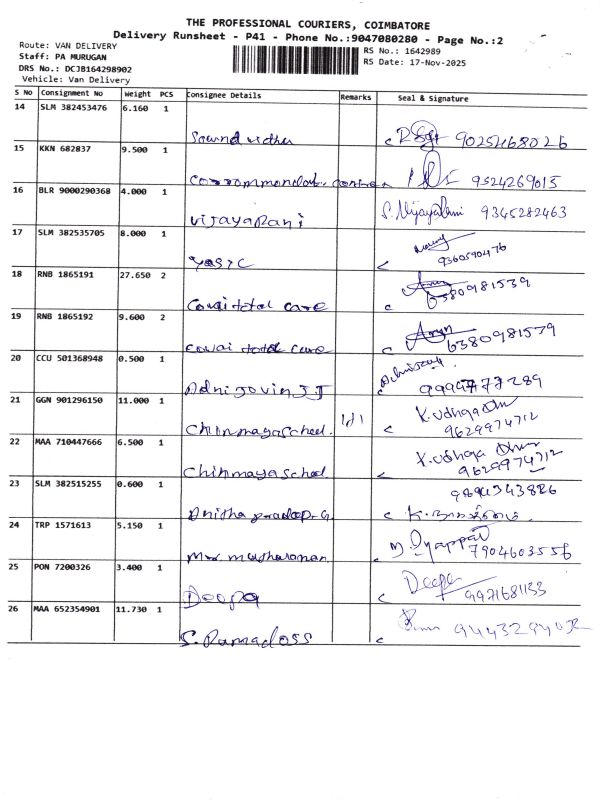 THE PROFESSIONAL COURIERS, COIMBATORE
Delivery Runsheet - P41 - Phone No.:9047080280 - Page No.:2
Route: VAN DELIVERY
Staff: PA MURUGAN
DRS No.: DCJB164298902
Vehicle: Van Delivery
RS No.: 1642989
RS Date: 17-Nov-2025
S No Consignment No Weight PCS Consignee Details Remarks Seal & Signature
14 SLM 382453476 6.160 1
9025468026
15 KKN 682837 9.500 1
9524269015
16 BLR 9000290368 4.000 1
Vijayarani 9345282463
17 SLM 382535705 8.000 1
9360590476
18 RNB 1865191 27.650 2
Covai total care 6380981539
19 RNB 1865192 9.600 2
covai total care 6380981539
20 CCU 501368948 0.500 1
9994777289
21 GGN 901296150 11.000 1
Chinmaya school 9629974712
22 MAA 710447666 6.500 1
Chinmaya school 9629974712
23 SLM 382515255 0.600 1
Anitha pradeep. G.
24 TRP 1571613 5.150 1
7904603556
25 PON 7200326 3.400 1
Deepa Deepa 9971681133
26 MAA 652354901 11.730 1
S. Ramadoss